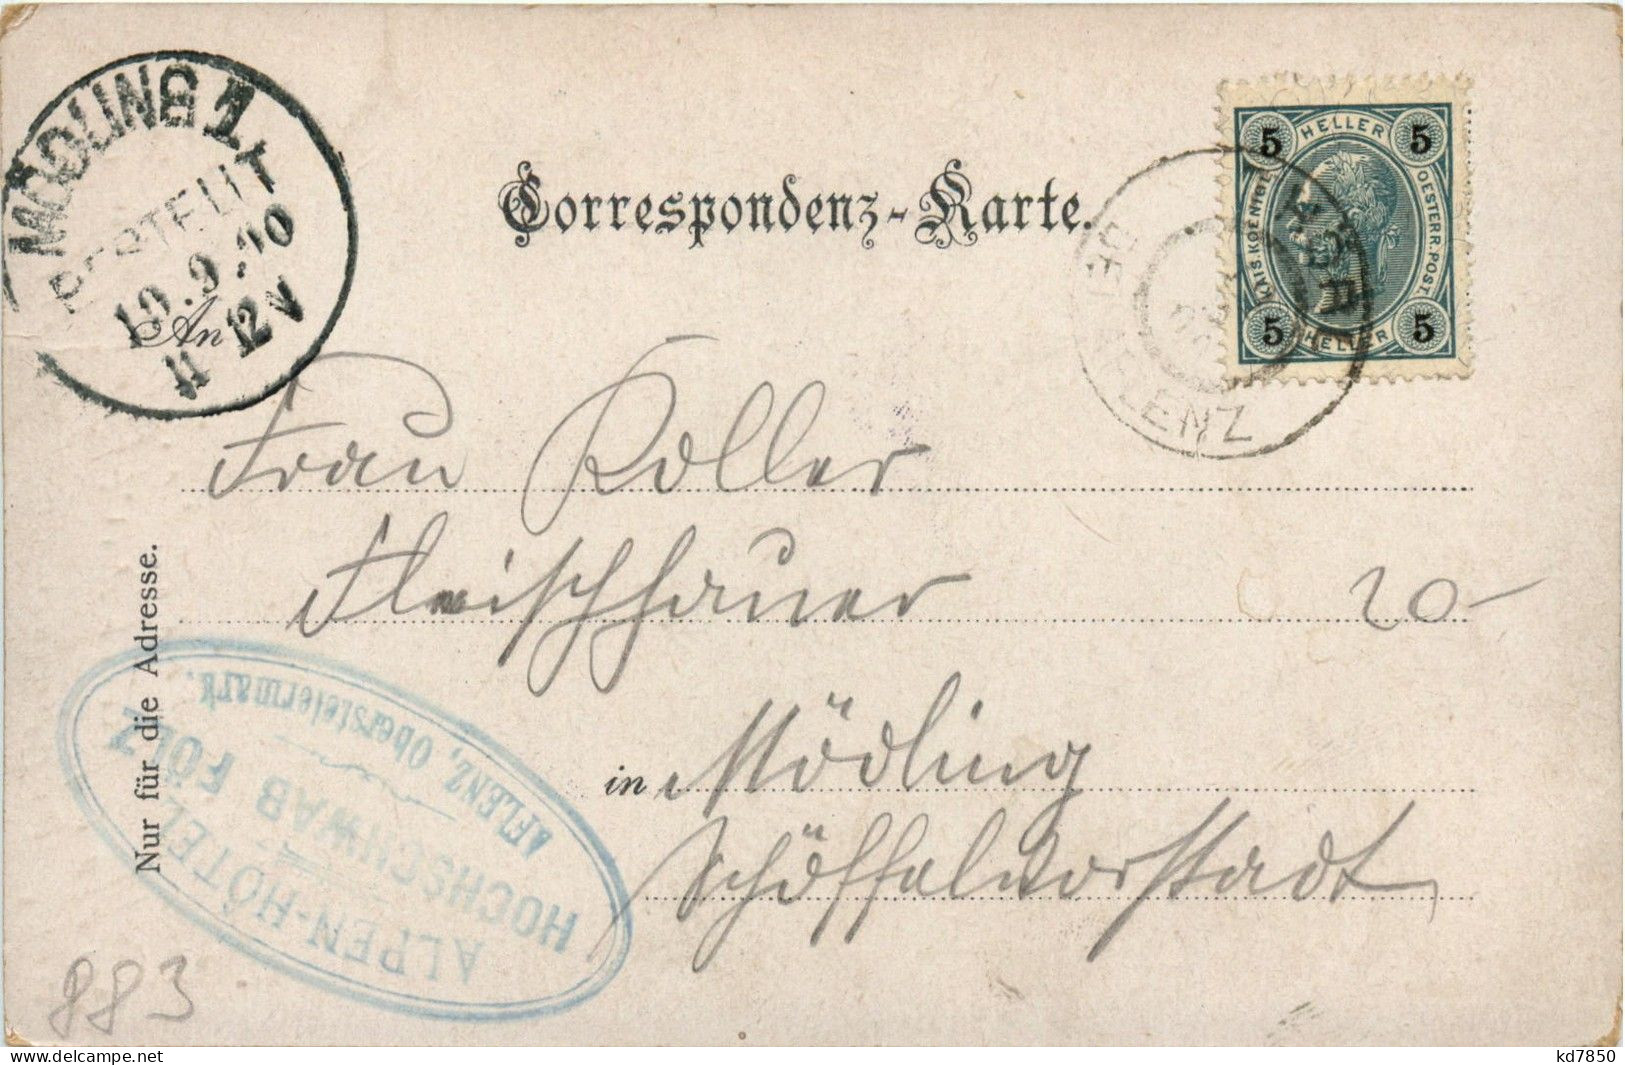 MÖDLING 1
BESTELLT
10.9.00
11 12 V
Correspondenz-Karte.
5 HELLER 5
KAIS. KOENIGL. OESTERR. POST
5 HELLER 5
AFLENZ
An
Frau Koller
Fleischhauer
20-
in Mödling
Schöffelvorstadt
Nur für die Adresse.
ALPEN-HÔTEL
HOCHSCHWAB FÖLZ
AFLENZ, Obersteiermark.
883
kd7850